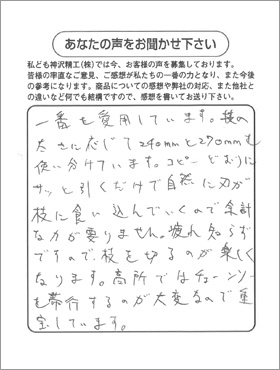 あなたの声をお聞かせ下さい
私ども神沢精工(株)では今、お客様の声を募集しております。
皆様の率直なご意見、ご感想が私たちの一番の力となり、また今後
の参考になります。商品についての感想や弊社の対応、また他社と
の違いなど何でも結構ですので、感想を書いてお送り下さい。
一番を愛用しています。枝の
太さに応じて240mmと270mmを
使い分けています。コピーどおりに
サッと引くだけで自然に刃が
枝に食い込んでいくので余計
な力が要りません。疲れ知らず
ですので、枝を切るのが楽しく
なります。高所ではチェーンソー
を帯行するのが大変なので重
宝しています。